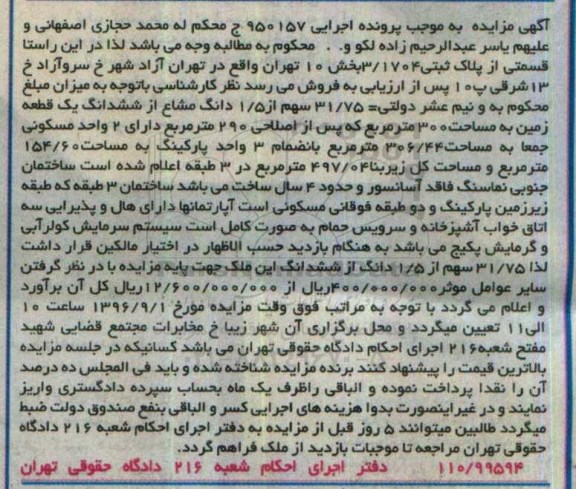 آگهی مزایده به موجب پرونده اجرایی ۹۵۰۱۵۷ ج محکم له محمد حجازی اصفهانی و
علیهم یاسر عبدالرحیم زاده لکو و. . محکوم به مطالبه وجه می باشد لذا در این راستا
قسمتی از پلاک ثبتی۳/۱۷۰۴بخش ۱۰ تهران واقع در تهران آزاد شهر خ سروآزاد خ
۱۳شرقی پ۱۰ پس از ارزیابی به فروش می رسد نظر کارشناسی باتوجه به میزان مبلغ
محکوم به و نیم عشر دولتی= ۳۱/۷۵ سهم از۱/۵ دانگ مشاع از ششدانگ یک قطعه
زمین به مساحت۳۰۰مترمربع که پس از اصلاحی ۲۹۰ مترمربع دارای ۲ واحد مسکونی
جمعا به مساحت۳۰۶/۴۴ مترمربع بانضمام ۳ واحد پارکینگ به مساحت۱۵۴/۶۰
مترمربع و مساحت کل زیربنا۴۹۷/۰۴ مترمربع در ۳ طبقه اعلام شده است ساختمان
جنوبی نماسنگ فاقد آسانسور و حدود ۴ سال ساخت می باشد ساختمان ۳ طبقه که طبقه
زیرزمین پارکینگ و دو طبقه فوقانی مسکونی است آپارتمانها دارای هال و پذیرایی سه
اتاق خواب آشپزخانه و سرویس حمام به صورت کامل است سیستم سرمایش کولرآبی
و گرمایش پکیج می باشد به هنگام بازدید حسب الاظهار در اختیار مالکین قرار داشت
لذا ۳۱/۷۵ سهم از ۱/۵ دانگ از ششدانگ این ملک جهت پایه مزایده با در نظر گرفتن
سایر عوامل موثر۴۰۰/۰۰۰/۰۰۰ریال از ۱۲/۶۰۰/۰۰۰/۰۰۰ریال کل آن برآورد
و اعلام می گردد با توجه به مراتب فوق وقت مزایده مورخ ۱۳۹۶/۹/۱ ساعت ۱۰
الی۱۱ تعیین میگردد و محل برگزاری آن شهر زیبا خ مخابرات مجتمع قضایی شهید
مفتح شعبه۲۱۶ اجرای احکام دادگاه حقوقی تهران می باشد کسانیکه در جلسه مزایده
بالاترین قیمت را پیشنهاد کنند برنده مزایده شناخته شده و باید فی المجلس ده درصد
آن را نقدا پرداخت نموده و الباقی راظرف یک ماه بحساب سپرده دادگستری واریز
نمایند و در غیراینصورت بدوا هزینه های اجرایی کسر و الباقی بنفع صندوق دولت ضبط
میگردد طالبین میتوانند ۵ روز قبل از مزایده به دفتر اجرای احکام شعبه ۲۱۶ دادگاه
حقوقی تهران مراجعه تا موجبات بازدید از ملک فراهم گردد.
۱۱۰/۹۹۵۹۴ دفتر اجرای احکام شعبه ۲۱۶ دادگاه حقوقی تهران